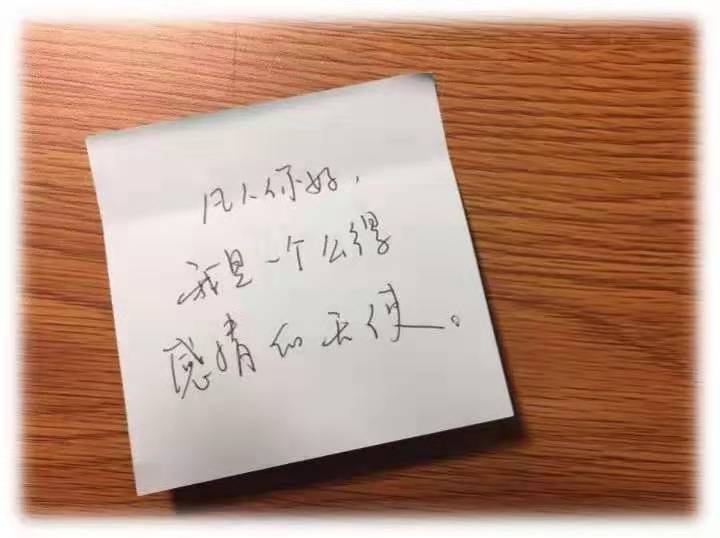 凡人你好，
我是一个么得
感情的天使。